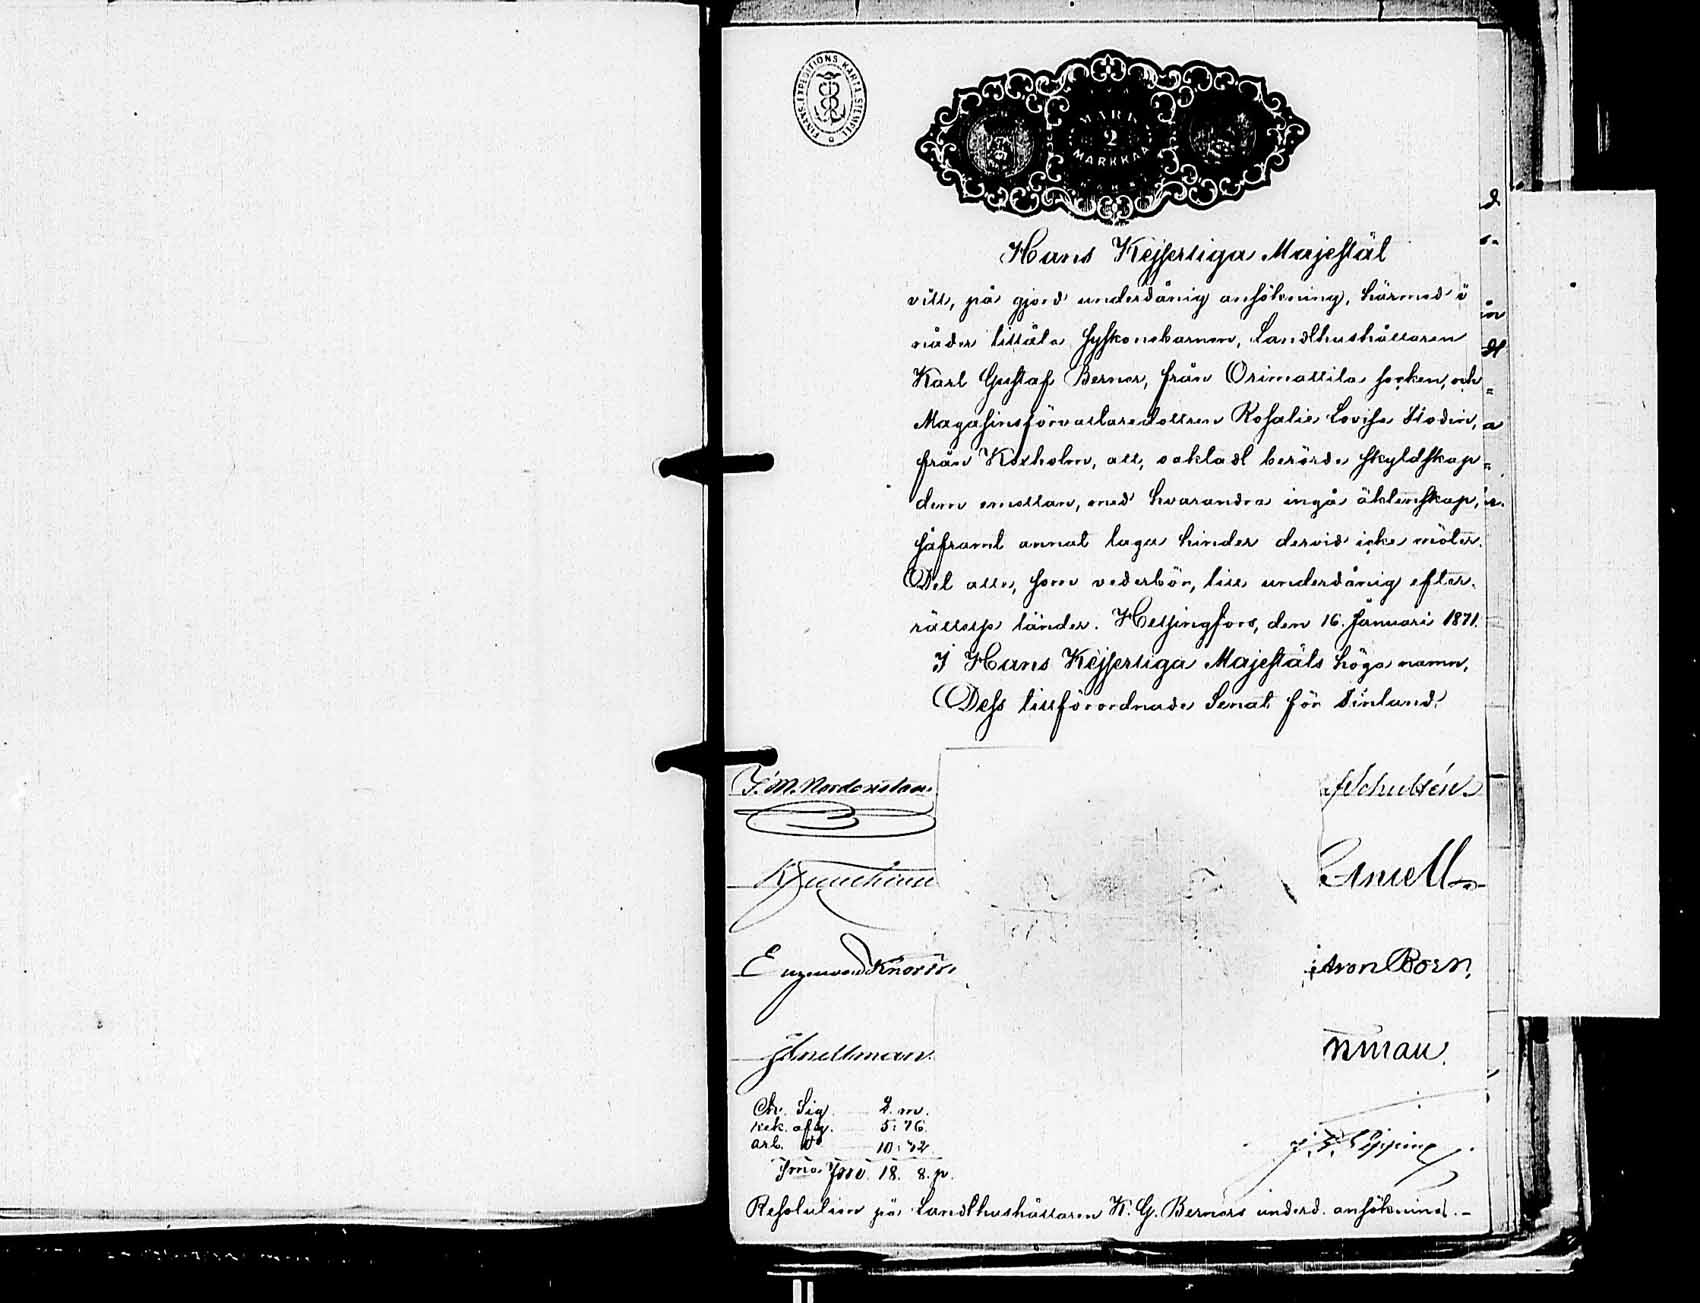 FINANS-EXPEDITIONS KARTA STEMPEL
MARK
2
MARKKAA
Hans Kejserliga Majestät
vill, på gjord underdånig ansökning, härmed i
nåder tillåta syskonebarnen, Landthushållaren
Karl Gustaf Berner, från Orimattila socken, och
Magasinsförvaltaredottren Rosalie Lovisa Flodin,
från Kexholm, att, oaktadt berörde skyldskap
dem emellan, med hvarandra ingå äktenskap,
såframt annat laga hinder dervid icke möter.
Det alle, som vederbör, till underdånig efter-
rättelse länder. Helsingfors, den 16. Januari 1871.
I Hans Kejserliga Majestäts höga namn,
Dess tillförordnade Senat för Finland.
J. M. Nordenstam
af Schultén
Eugene von Knorring
von Born
JSnellman
Ch. Sig. 2. m.
10:32
Sma Smr 18. 8. p.
Resolution på Landthushållaren K. G. Berners underd. ansökning.